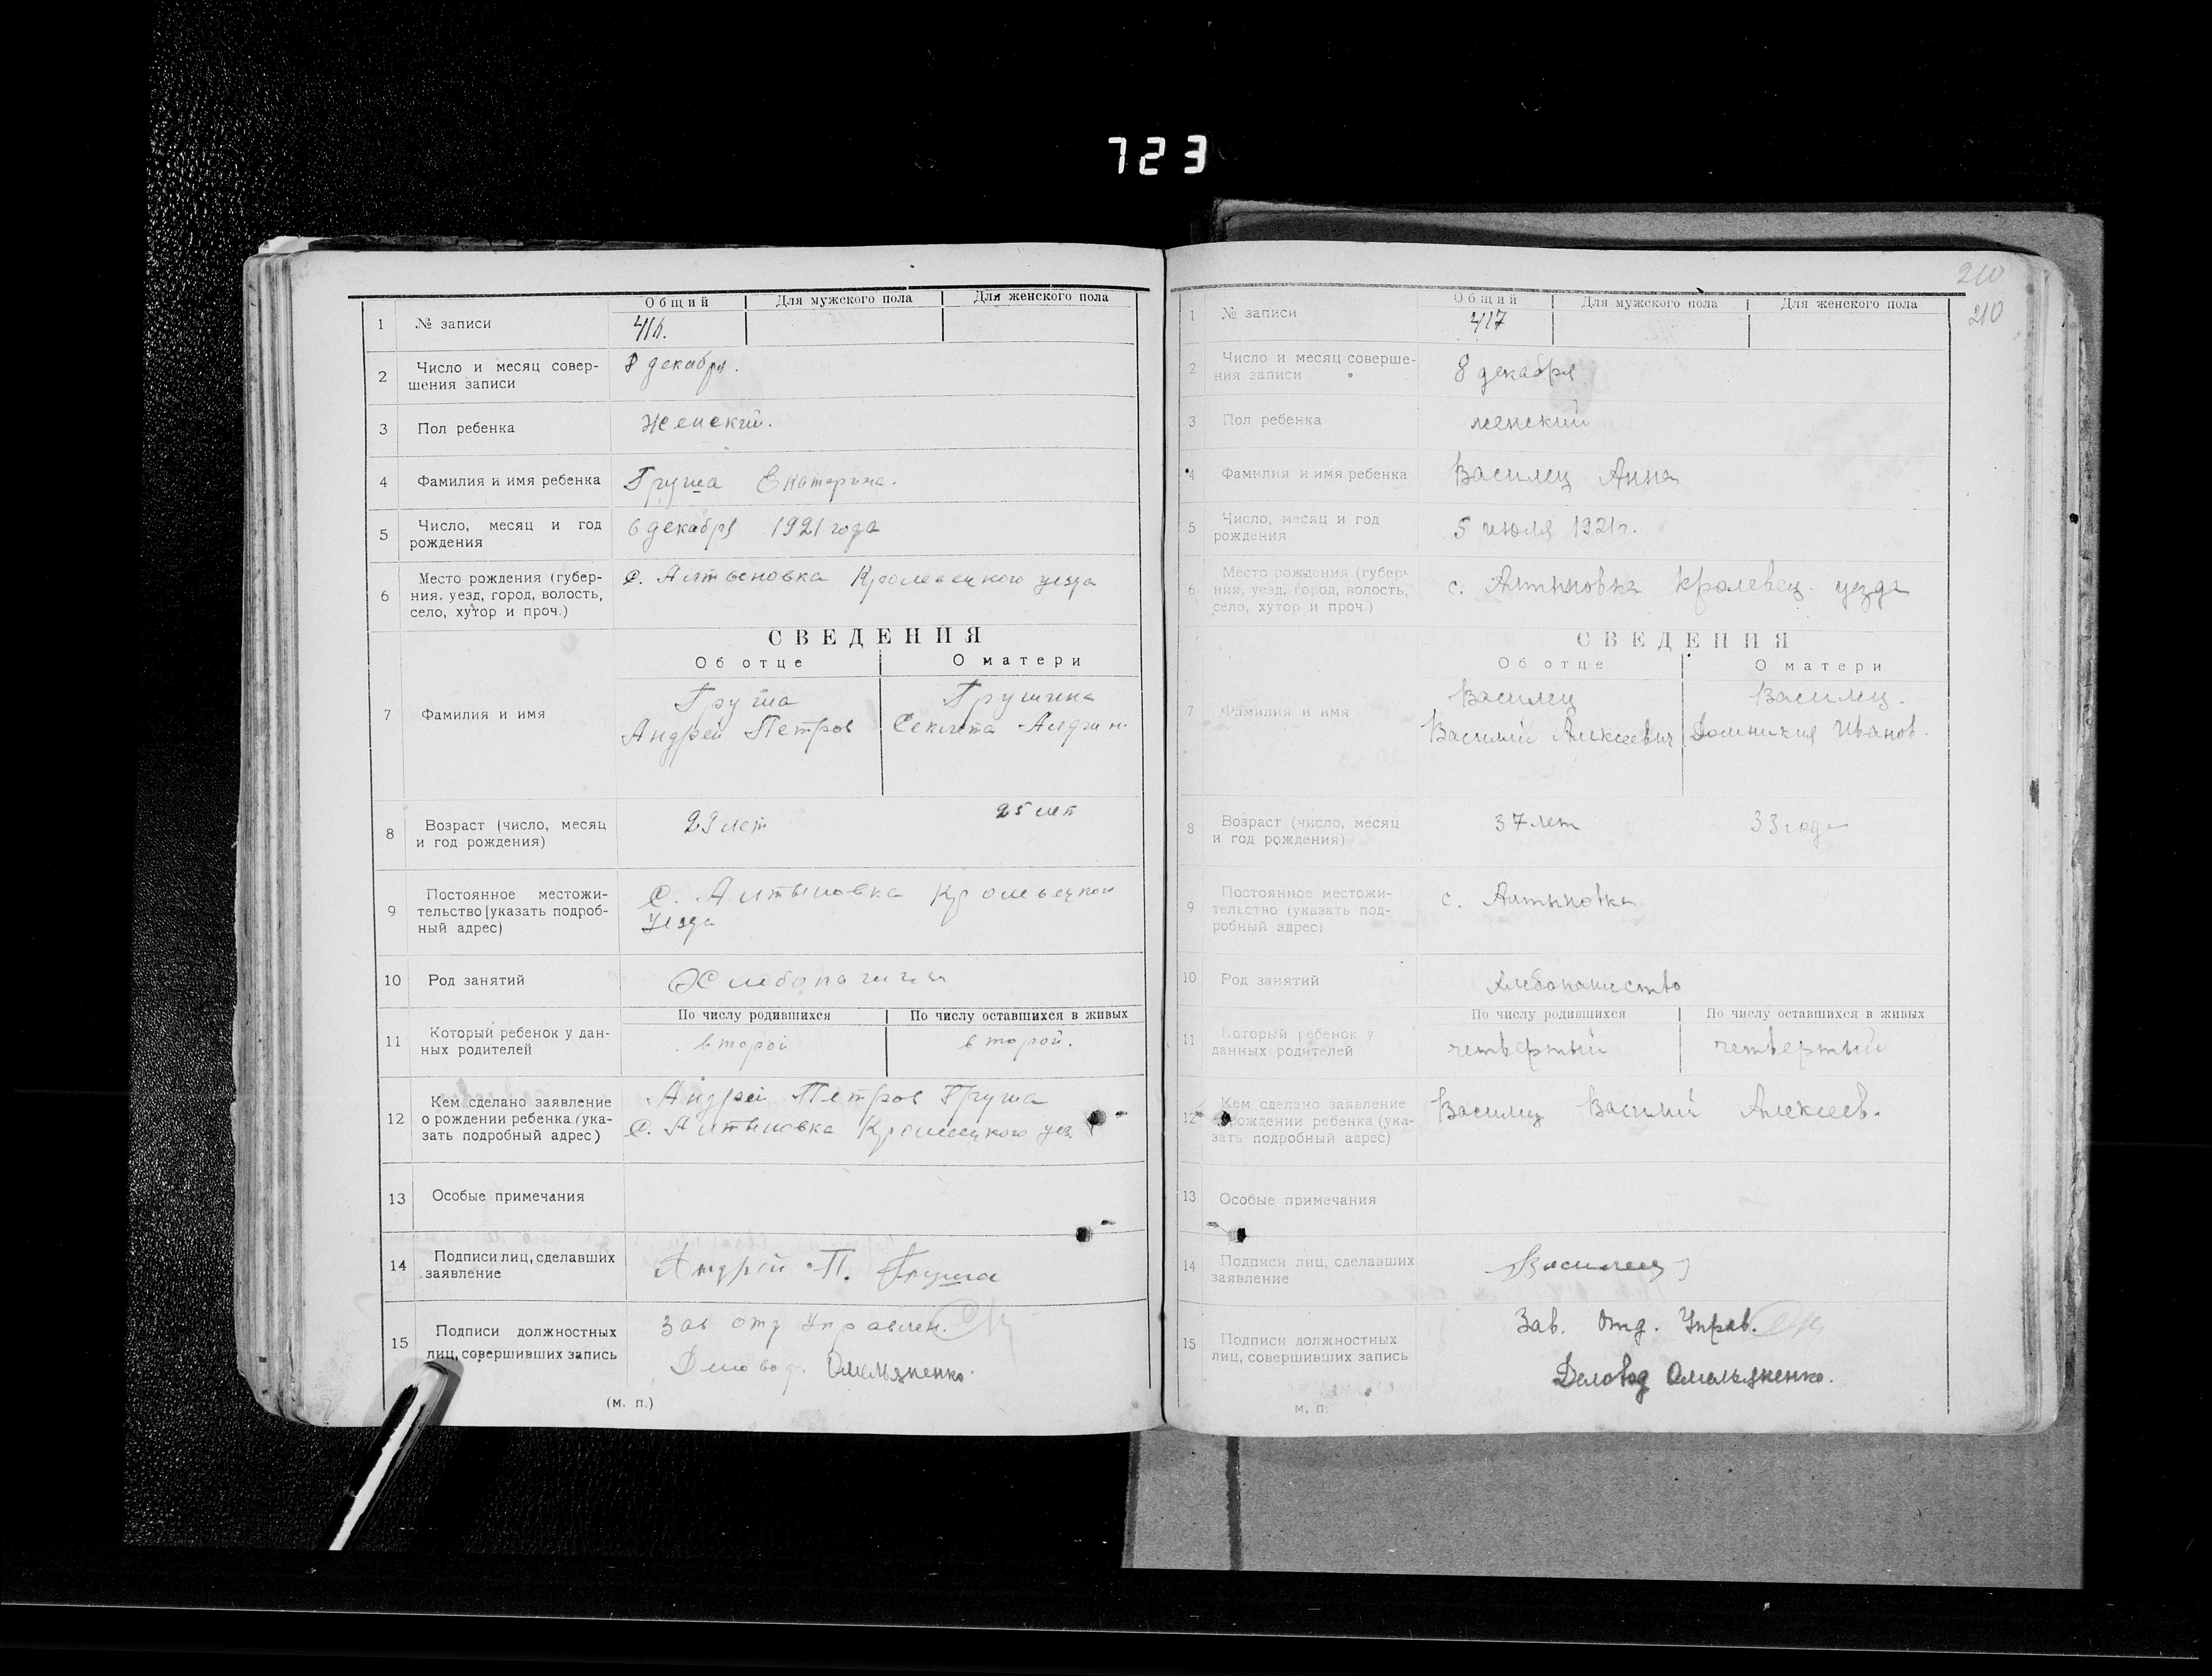 723
Общий | Для мужского пола | Для женского пола
1 № записи 416.
2 Число и месяц совер-
шения записи 8 декабря.
3 Пол ребенка Женский.
4 Фамилия и имя ребенка Груша Екатерина.
5 Число, месяц и год
рождения 6 декабря 1921 года
6 Место рождения (губер-
ния, уезд, город, волость,
село, хутор и проч.) С. Алтыновка Кролевецкого уезда
СВЕДЕНИЯ
Об отце | О матери
7 Фамилия и имя
Груша | Грушина
Андрей Петров | Секлета
8 Возраст (число, месяц
и год рождения) 29 лет | 25 лет
9 Постоянное местожи-
тельство [указать подроб-
ный адрес)
С. Алтыновка Кролевецкого
уезда
10 Род занятий
По числу родившихся | По числу оставшихся в живых
11 Который ребенок у дан-
ных родителей второй | второй.
12 Кем сделано заявление
о рождении ребенка (ука-
зать подробный адрес)
Андрей Петров Груша
С. Алтыновка Кролевецкого уез.
13 Особые примечания
14 Подписи лиц, сделавших
заявление Андрей П. Груша
15 Подписи должностных
лиц, совершивших запись
Зав отд Управлен.
Деловод. Омельяненко.
(м. п.)
210
210
Общий | Для мужского пола | Для женского пола
1 № записи 417
2 Число и месяц соверше-
ния записи 8 декабря
3 Пол ребенка женский
4 Фамилия и имя ребенка Василец Анна
5 Число, месяц и год
рождения 5 июля 1921 г.
6 Место рождения (губер-
ния, уезд, город, волость,
село, хутор и проч.) с. Алтыновка Кролевец. уезда
СВЕДЕНИЯ
Об отце | О матери
7 Фамилия и имя
Василец | Василец.
Василий Алексеевич | Домникия Иванов.
8 Возраст (число, месяц
и год рождения) 37 лет | 33 года
9 Постоянное местожи-
тельство (указать под-
робный адрес) с. Алтыновка
10 Род занятий Хлебопашество
По числу родившихся | По числу оставшихся в живых
11 Который ребенок у
данных родителей четвертый | четвертый
12 Кем сделано заявление
о рождении ребенка (ука-
зать подробный адрес) Василец Василий Алексеев.
13 Особые примечания
14 Подписи лиц, сделавших
заявление Василец
15 Подписи должностных
лиц, совершивших запись
Зав. Отд. Управ.
Деловод Омельяненко.
м. п.